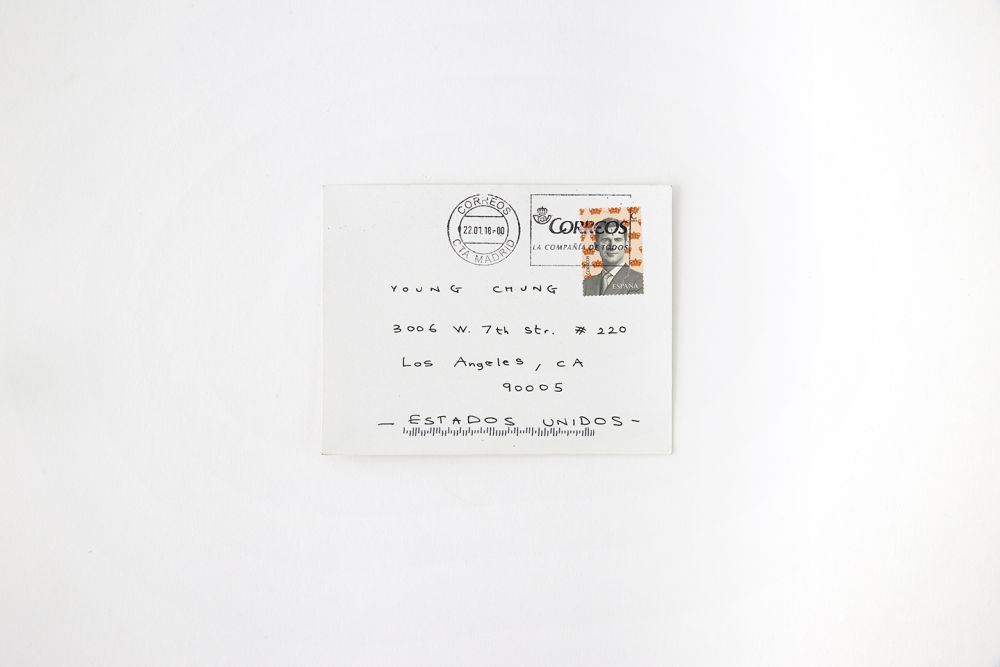 CORREOS
22.01.18-00
CTA MADRID
CORREOS
LA COMPAÑÍA DE TODOS
CORREOS
ESPAÑA
YOUNG CHUNG
3006 W. 7th str. # 220
Los Angeles, CA
90005
— ESTADOS UNIDOS —